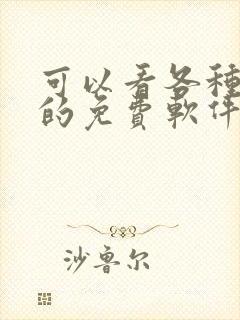 可以看各種
的免費軟件
沙鲁尔